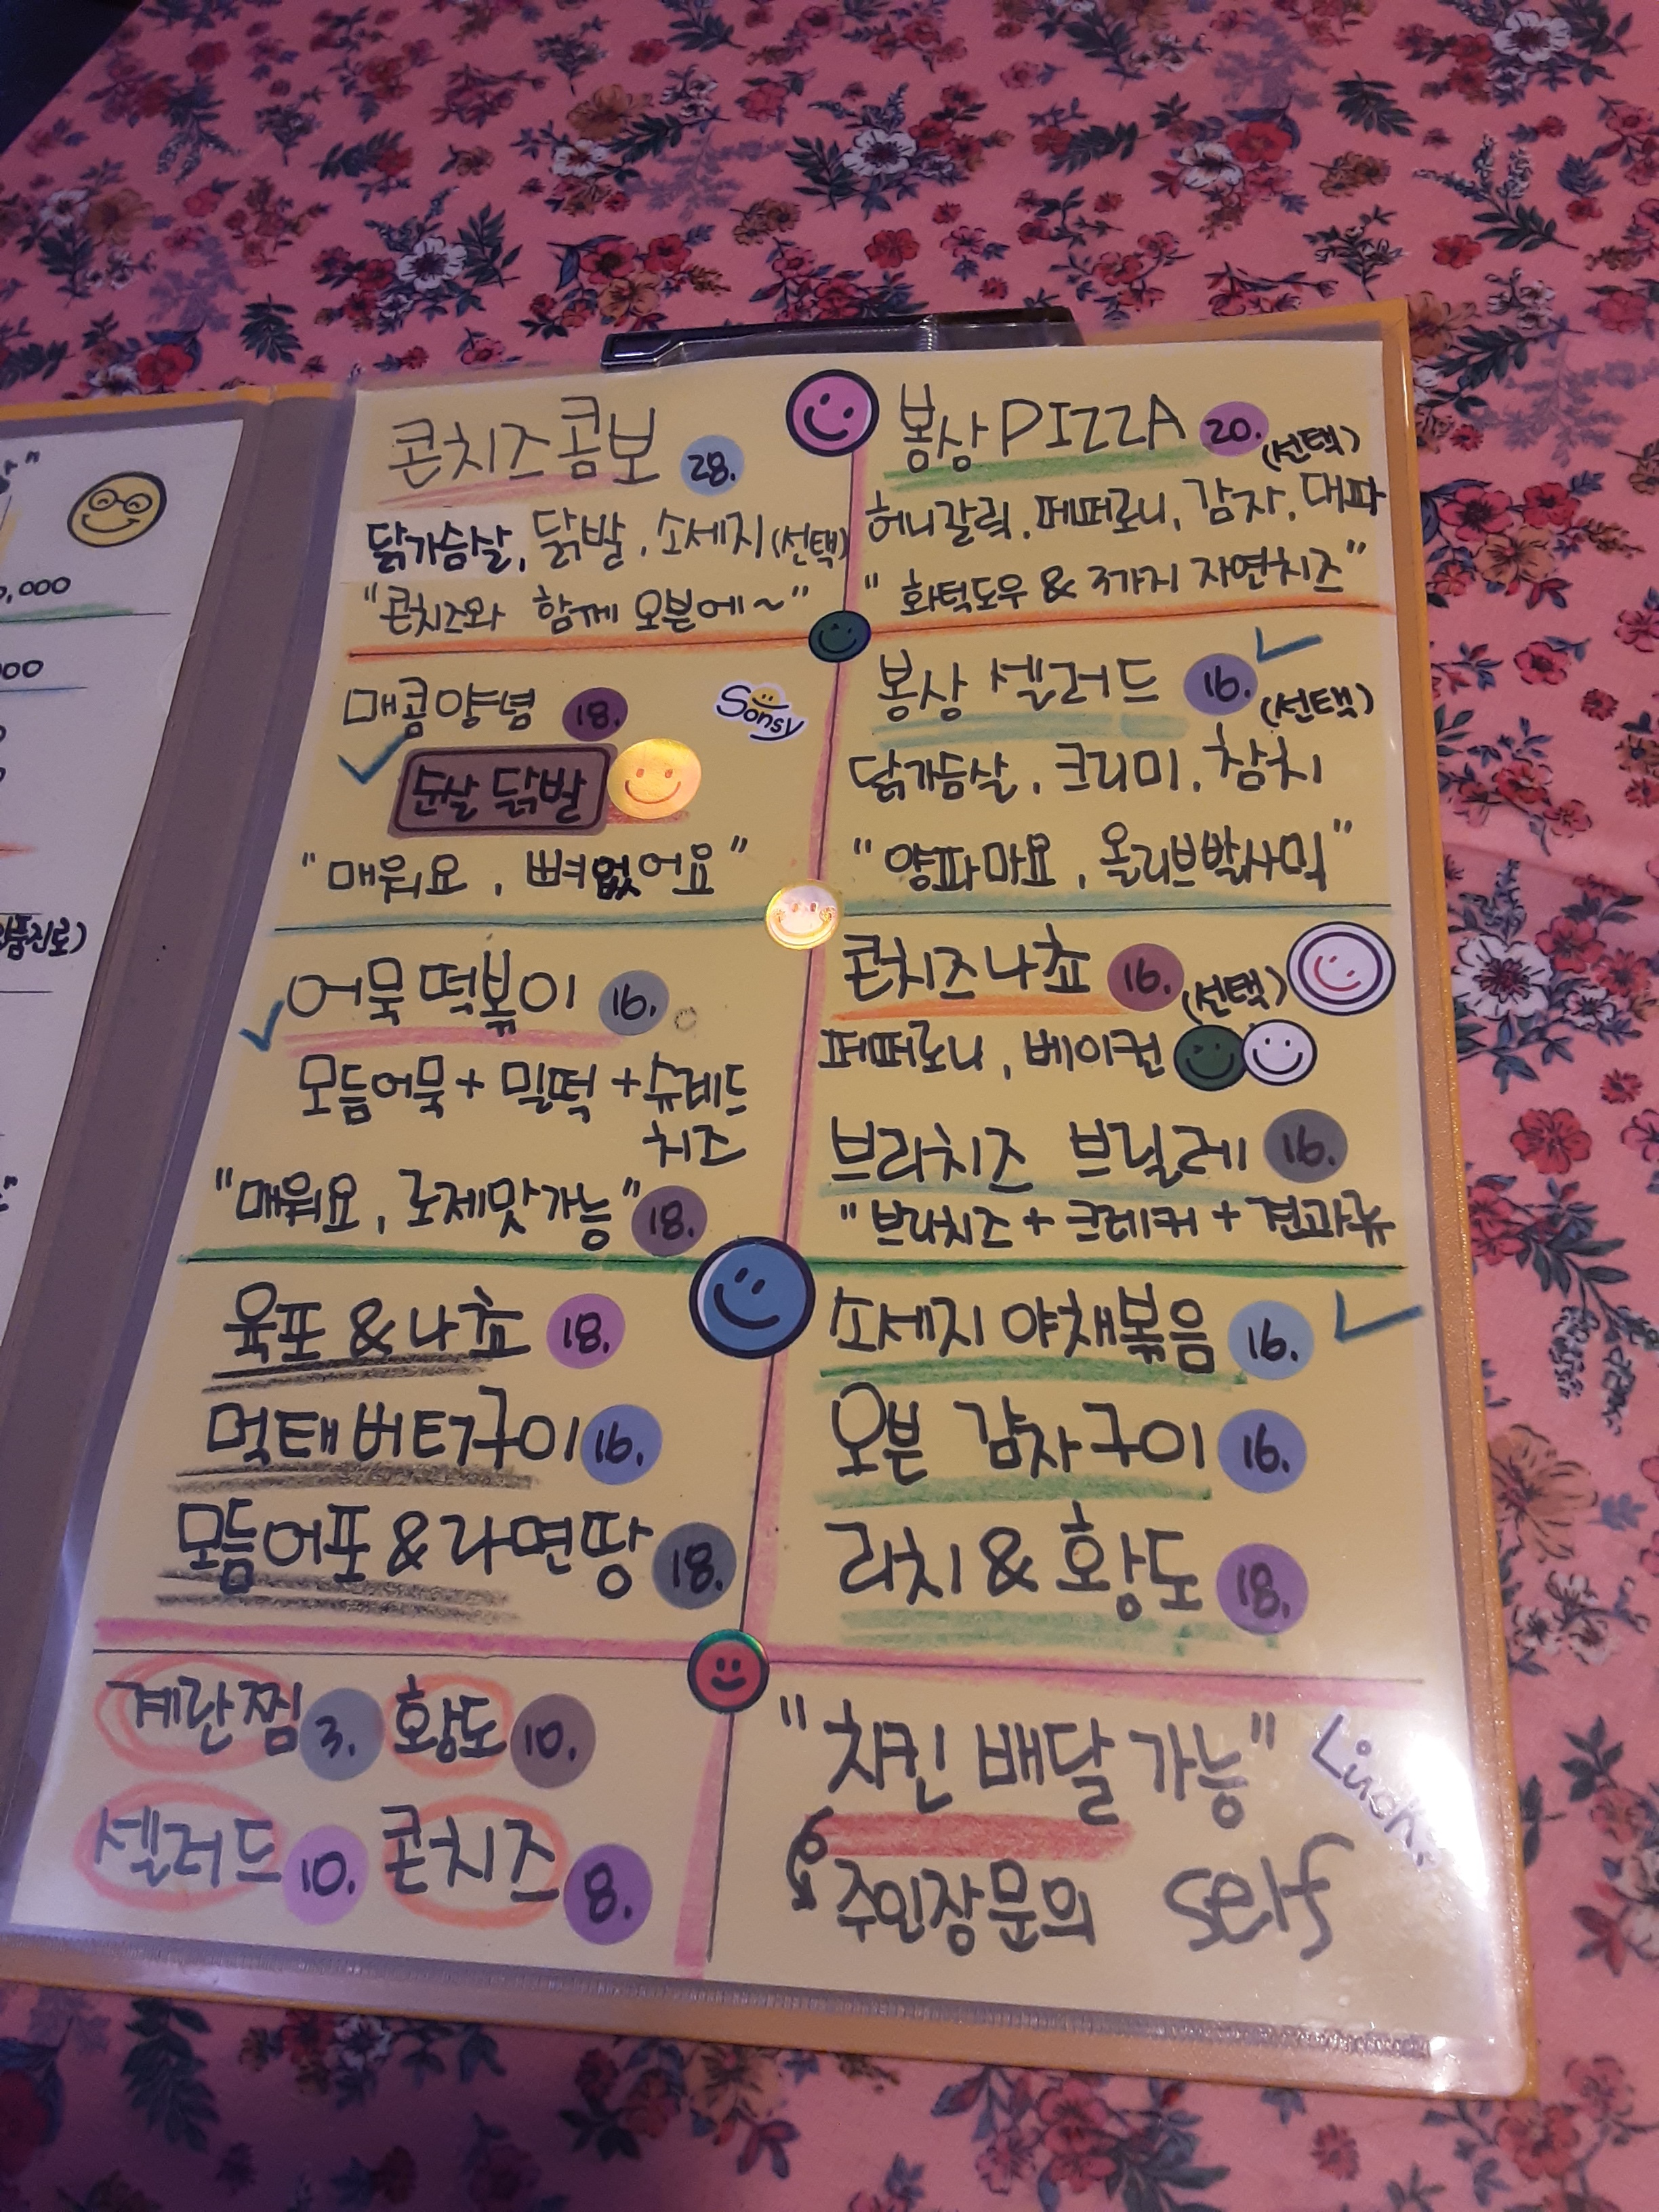 콘치즈콤보 28.
닭가슴살, 닭발, 소세지(선택)
"콘치즈와 함께 오븐에~"
매콤양념 18.
Sonsy
순살 닭발
"매워요, 뼈없어요"
어묵 떡볶이 16.
모듬어묵 + 밀떡 + 슈레드
치즈
"매워요, 로제맛가능" 18.
육포 & 나쵸 18.
먹태버터구이 16.
모듬어포 & 라면땅 18.
계란찜 3. 황도 10.
셀러드 10. 콘치즈 8.
봉상 PIZZA 20. (선택)
허니갈릭, 페퍼로니, 감자, 대파
"화덕도우 & 3가지 자연치즈"
봉상 셀러드 16. (선택)
닭가슴살, 크리미, 참치
"양파마요, 올리브발사믹"
콘치즈나쵸 16. (선택)
페퍼로니, 베이컨
브리치즈 브륄레 16.
"브리치즈 + 크레커 + 견과류
소세지 야채볶음 16.
오븐 감자구이 16.
리치 & 황도 18.
"치킨 배달 가능"
주인장 문의 self
,000
00